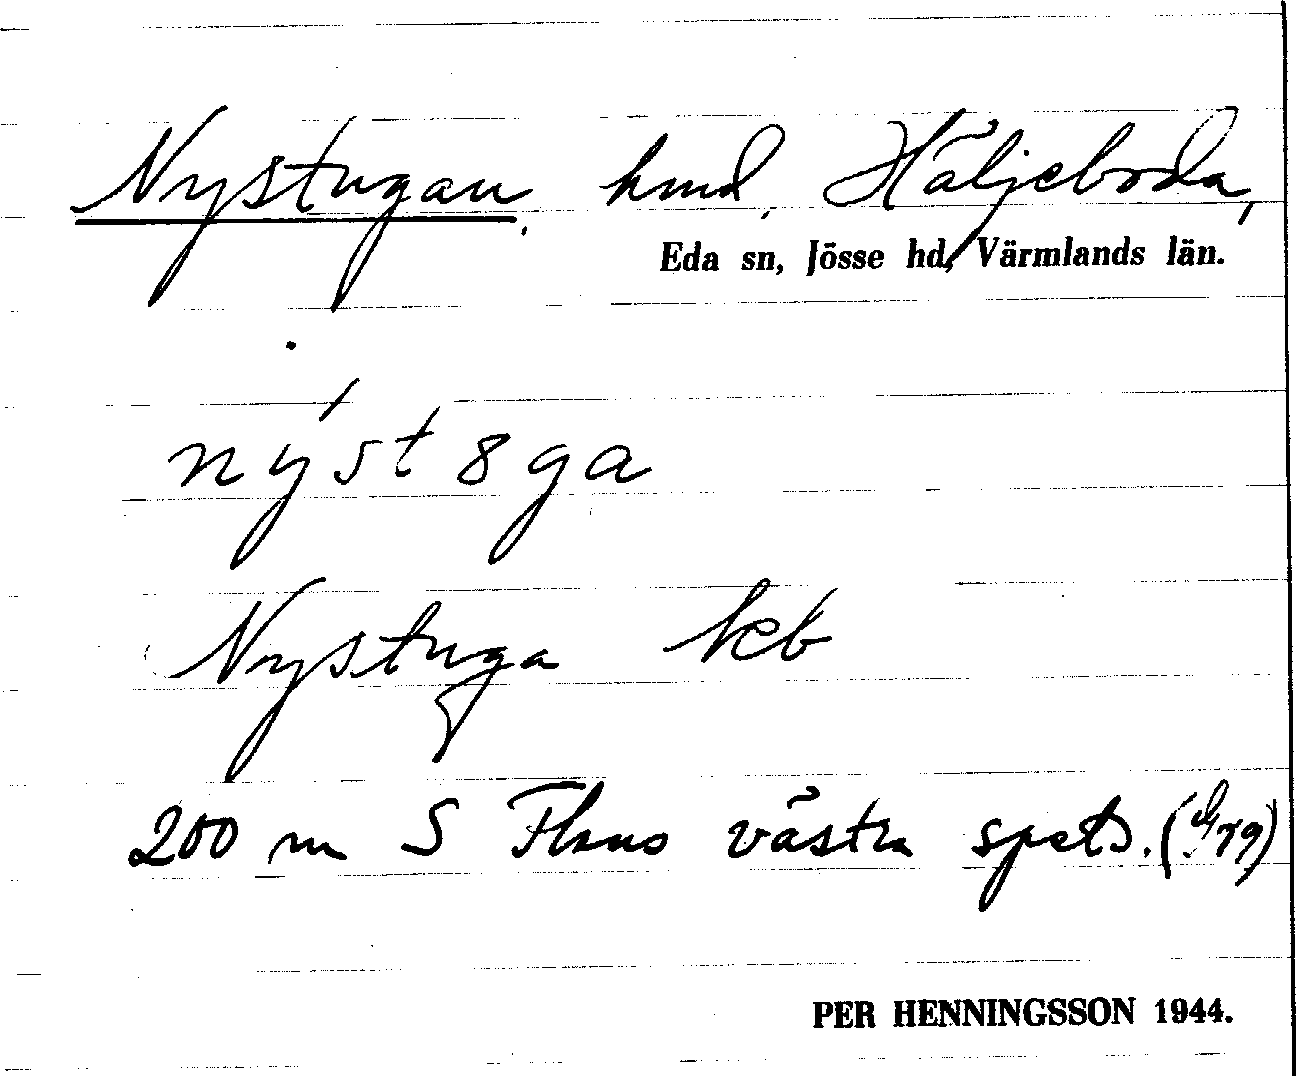 Nystugan, hmd, Häljeboda,
Eda sn, Jösse hd, Värmlands län.
nýst8ga
Nystuga kb
200 m S Flans västra spets.
PER HENNINGSSON 1944.